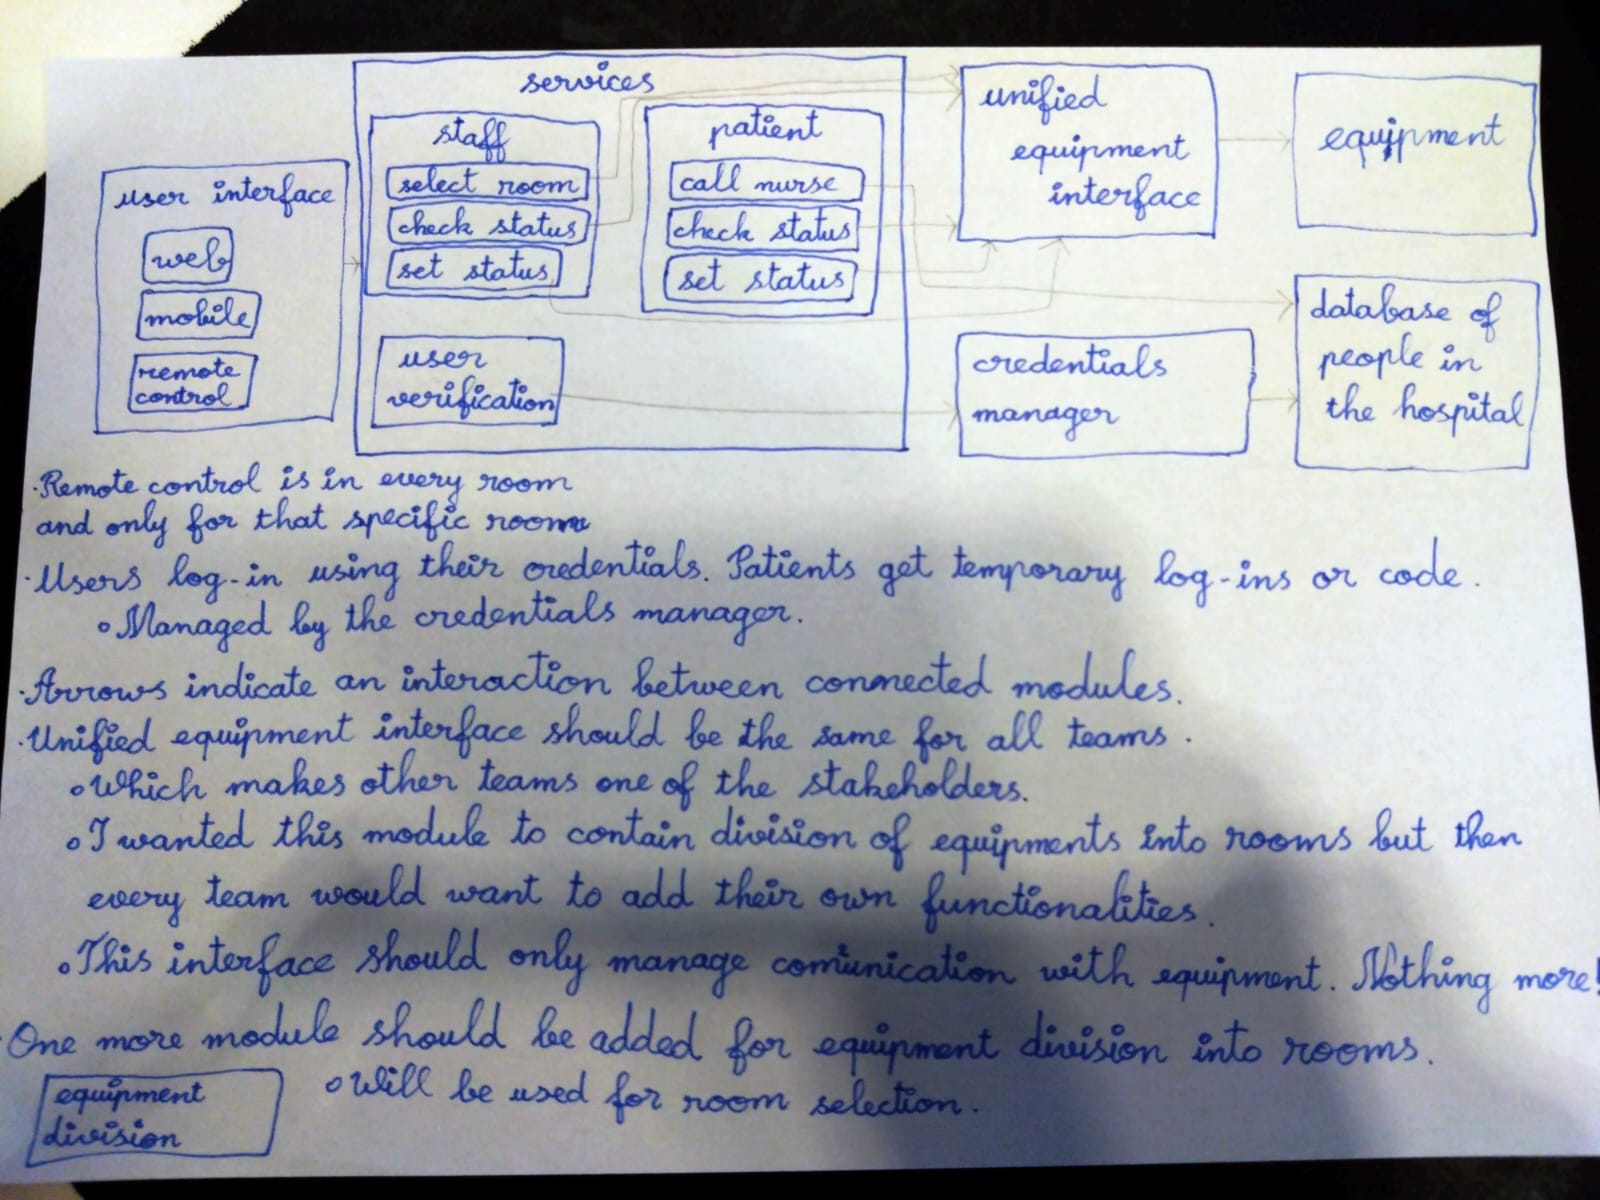 services
staff
select room
check status
set status
patient
call nurse
check status
set status
user verification
user interface
web
mobile
remote
control
unified
equipment
interface
equipment
credentials
manager
database of
people in
the hospital
·Remote control is in every room
and only for that specific room
·Users log-in using their credentials. Patients get temporary log-ins or code.
∘Managed by the credentials manager.
·Arrows indicate an interaction between connected modules.
·Unified equipment interface should be the same for all teams.
∘Which makes other teams one of the stakeholders.
∘I wanted this module to contain division of equipments into rooms but then
every team would want to add their own functionalities.
∘This interface should only manage comunication with equipment. Nothing more!
·One more module should be added for equipment division into rooms.
equipment
division
∘Will be used for room selection.